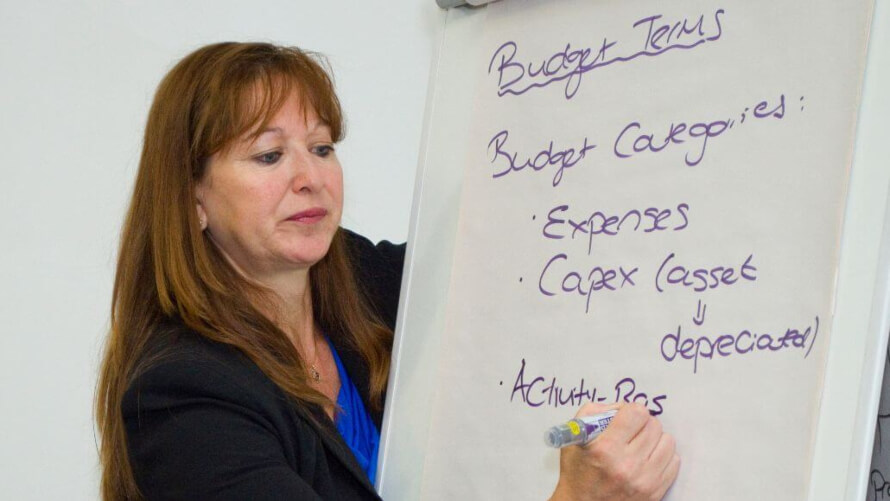 Budget Terms
Budget Categories:
· Expenses
· Capex (asset
⇓
depreciated)
· Activity-Bas